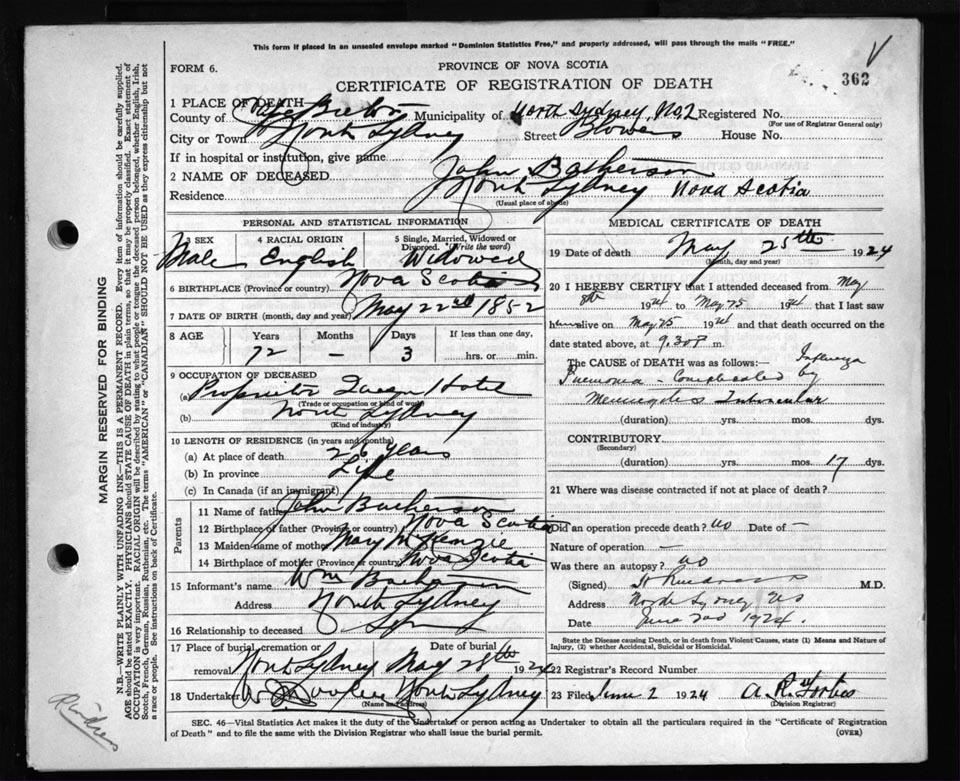 This form if placed in an unsealed envelope marked "Dominion Statistics Free," and properly addressed, will pass through the mails "FREE."
FORM 6.
PROVINCE OF NOVA SCOTIA
362
CERTIFICATE OF REGISTRATION OF DEATH
1 PLACE OF DEATH
County of Cape Breton Municipality of North Sydney, No 2 Registered No.
(For use of Registrar General only)
City or Town North Sydney Street Bowers House No.
If in hospital or institution, give name
2 NAME OF DECEASED John Batherson
Residence North Sydney Nova Scotia
(Usual place of abode)
PERSONAL AND STATISTICAL INFORMATION
3 SEX Male
4 RACIAL ORIGIN English
5 Single, Married, Widowed or Divorced. (Write the word) Widowed
6 BIRTHPLACE (Province or country) Nova Scotia
7 DATE OF BIRTH (month, day and year) May 22nd 1852
8 AGE Years Months Days If less than one day,
72 — 3 hrs. or min.
9 OCCUPATION OF DECEASED
(a) Proprietor Queen Hotel
(Trade or occupation or kind of work)
(b) North Sydney
(Kind of industry)
10 LENGTH OF RESIDENCE (in years and months)
(a) At place of death 26 years
(b) In province Life
(c) In Canada (if an immigrant)
Parents
11 Name of father John Batherson
12 Birthplace of father (Province or country) Nova Scotia
13 Maiden name of mother Mary McKenzie
14 Birthplace of mother (Province or country) Nova Scotia
15 Informant's name Wm Batherson
Address North Sydney
16 Relationship to deceased Son
17 Place of burial, cremation or removal North Sydney Date of burial May 28th 1924
18 Undertaker North Sydney
(Name and address)
MEDICAL CERTIFICATE OF DEATH
19 Date of death May 25th 1924
(Month, day and year)
20 I HEREBY CERTIFY that I attended deceased from May
8th 1924 to May 25 1924 that I last saw
him alive on May 25 1924 and that death occurred on
date stated above, at 9.30 P m.
The CAUSE of DEATH was as follows:— Influenza
Pneumonia - Complicated by
Meningitis Tubercular
(duration) yrs. mos. dys.
CONTRIBUTORY
(Secondary)
(duration) yrs. mos. 17 dys.
21 Where was disease contracted if not at place of death?
Did an operation precede death? no Date of —
Nature of operation —
Was there an autopsy? no
(Signed) M.D.
Address North Sydney NS
Date June 2nd 1924.
State the Disease causing Death, or in death from Violent Causes, state (1) Means and Nature of Injury, (2) whether Accidental, Suicidal or Homicidal.
22 Registrar's Record Number
23 Filed June 2 1924 A. R. Forbes
(Division Registrar)
SEC. 46—Vital Statistics Act makes it the duty of the Undertaker or person acting as Undertaker to obtain all the particulars required in the "Certificate of Registration
of Death" and to file the same with the Division Registrar who shall issue the burial permit.
(OVER)
MARGIN RESERVED FOR BINDING
N.B.—WRITE PLAINLY WITH UNFADING INK—THIS IS A PERMANENT RECORD. Every item of information should be carefully supplied.
AGE should be stated EXACTLY. PHYSICIANS should STATE CAUSE OF DEATH in plain terms, so that it may be properly classified. Exact statement of
OCCUPATION is very important. RACIAL ORIGIN will be described by stating to what people or tongue the deceased person belonged, whether English, Irish,
Scotch, French, German, Russian, Ruthenian, etc. The terms "AMERICAN" or "CANADIAN" SHOULD NOT BE USED as they express citizenship but not
a race or people. See instructions on back of Certificate.